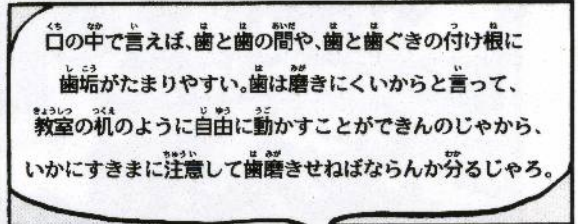 口の中で言えば、歯と歯の間や、歯と歯ぐきの付け根に
歯垢がたまりやすい。歯は磨きにくいからと言って、
教室の机のように自由に動かすことができんのじゃから、
いかにすきまに注意して歯磨きせねばならんか分るじゃろ。